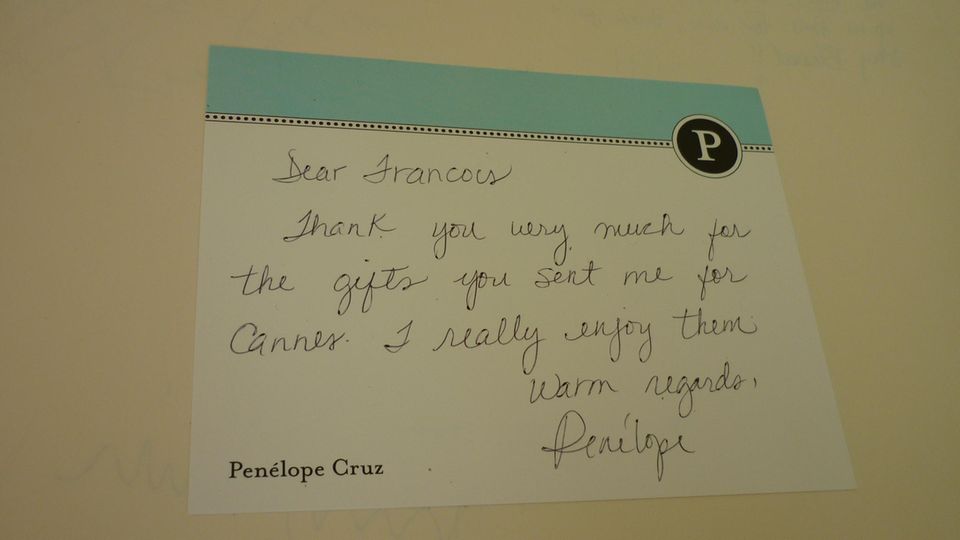 P
Dear Francois
Thank you very much for
the gifts you sent me for
Cannes. I really enjoy them
Warm regards,
Penélope
Penélope Cruz